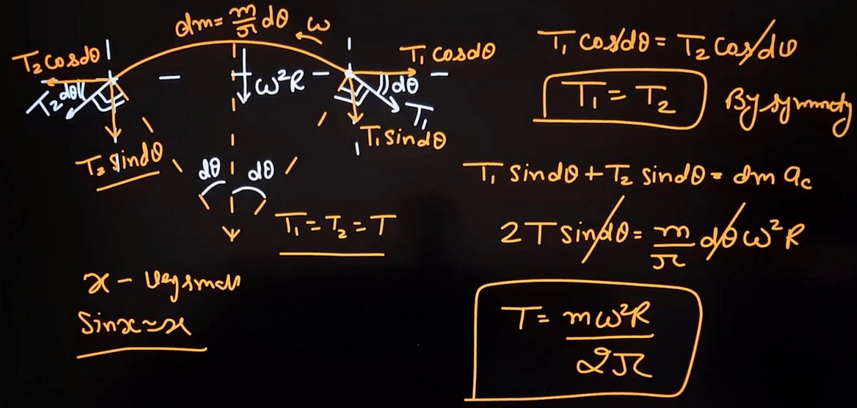 dm = m/π dθ
ω
T₂cosdθ
T₁ cosdθ
T₂
dθ
ω²R
dθ
T₁
T₂ sindθ
T₁sindθ
dθ dθ
T₁ = T₂ = T
x - very small
Sinx ≈ x
T₁ cosdθ = T₂ cosdθ
T₁ = T₂ By symmety
T₁ sindθ + T₂ sindθ = dm ac
2T sindθ = m/π dθ ω²R
T = mω²R/2π